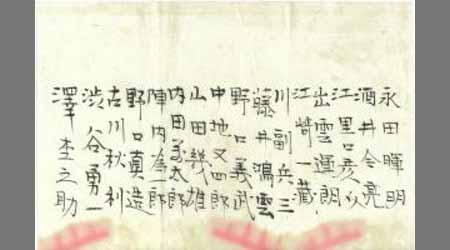 永田暉明
酒井令亮
江里口
出雲運朗
江崎一蔵
川副兵三
藤井鴻雲
野口義武
中地又四郎
山田幾雄
内田太郎
陣内為一郎
野口真造
古川秋利
渋谷勇一
澤 之助